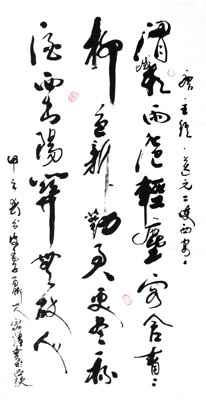 唐·王維·送元二使西安
渭城朝雨浥輕塵客舍青〻
柳色新勸君更盡一杯
酒西出陽關無故人